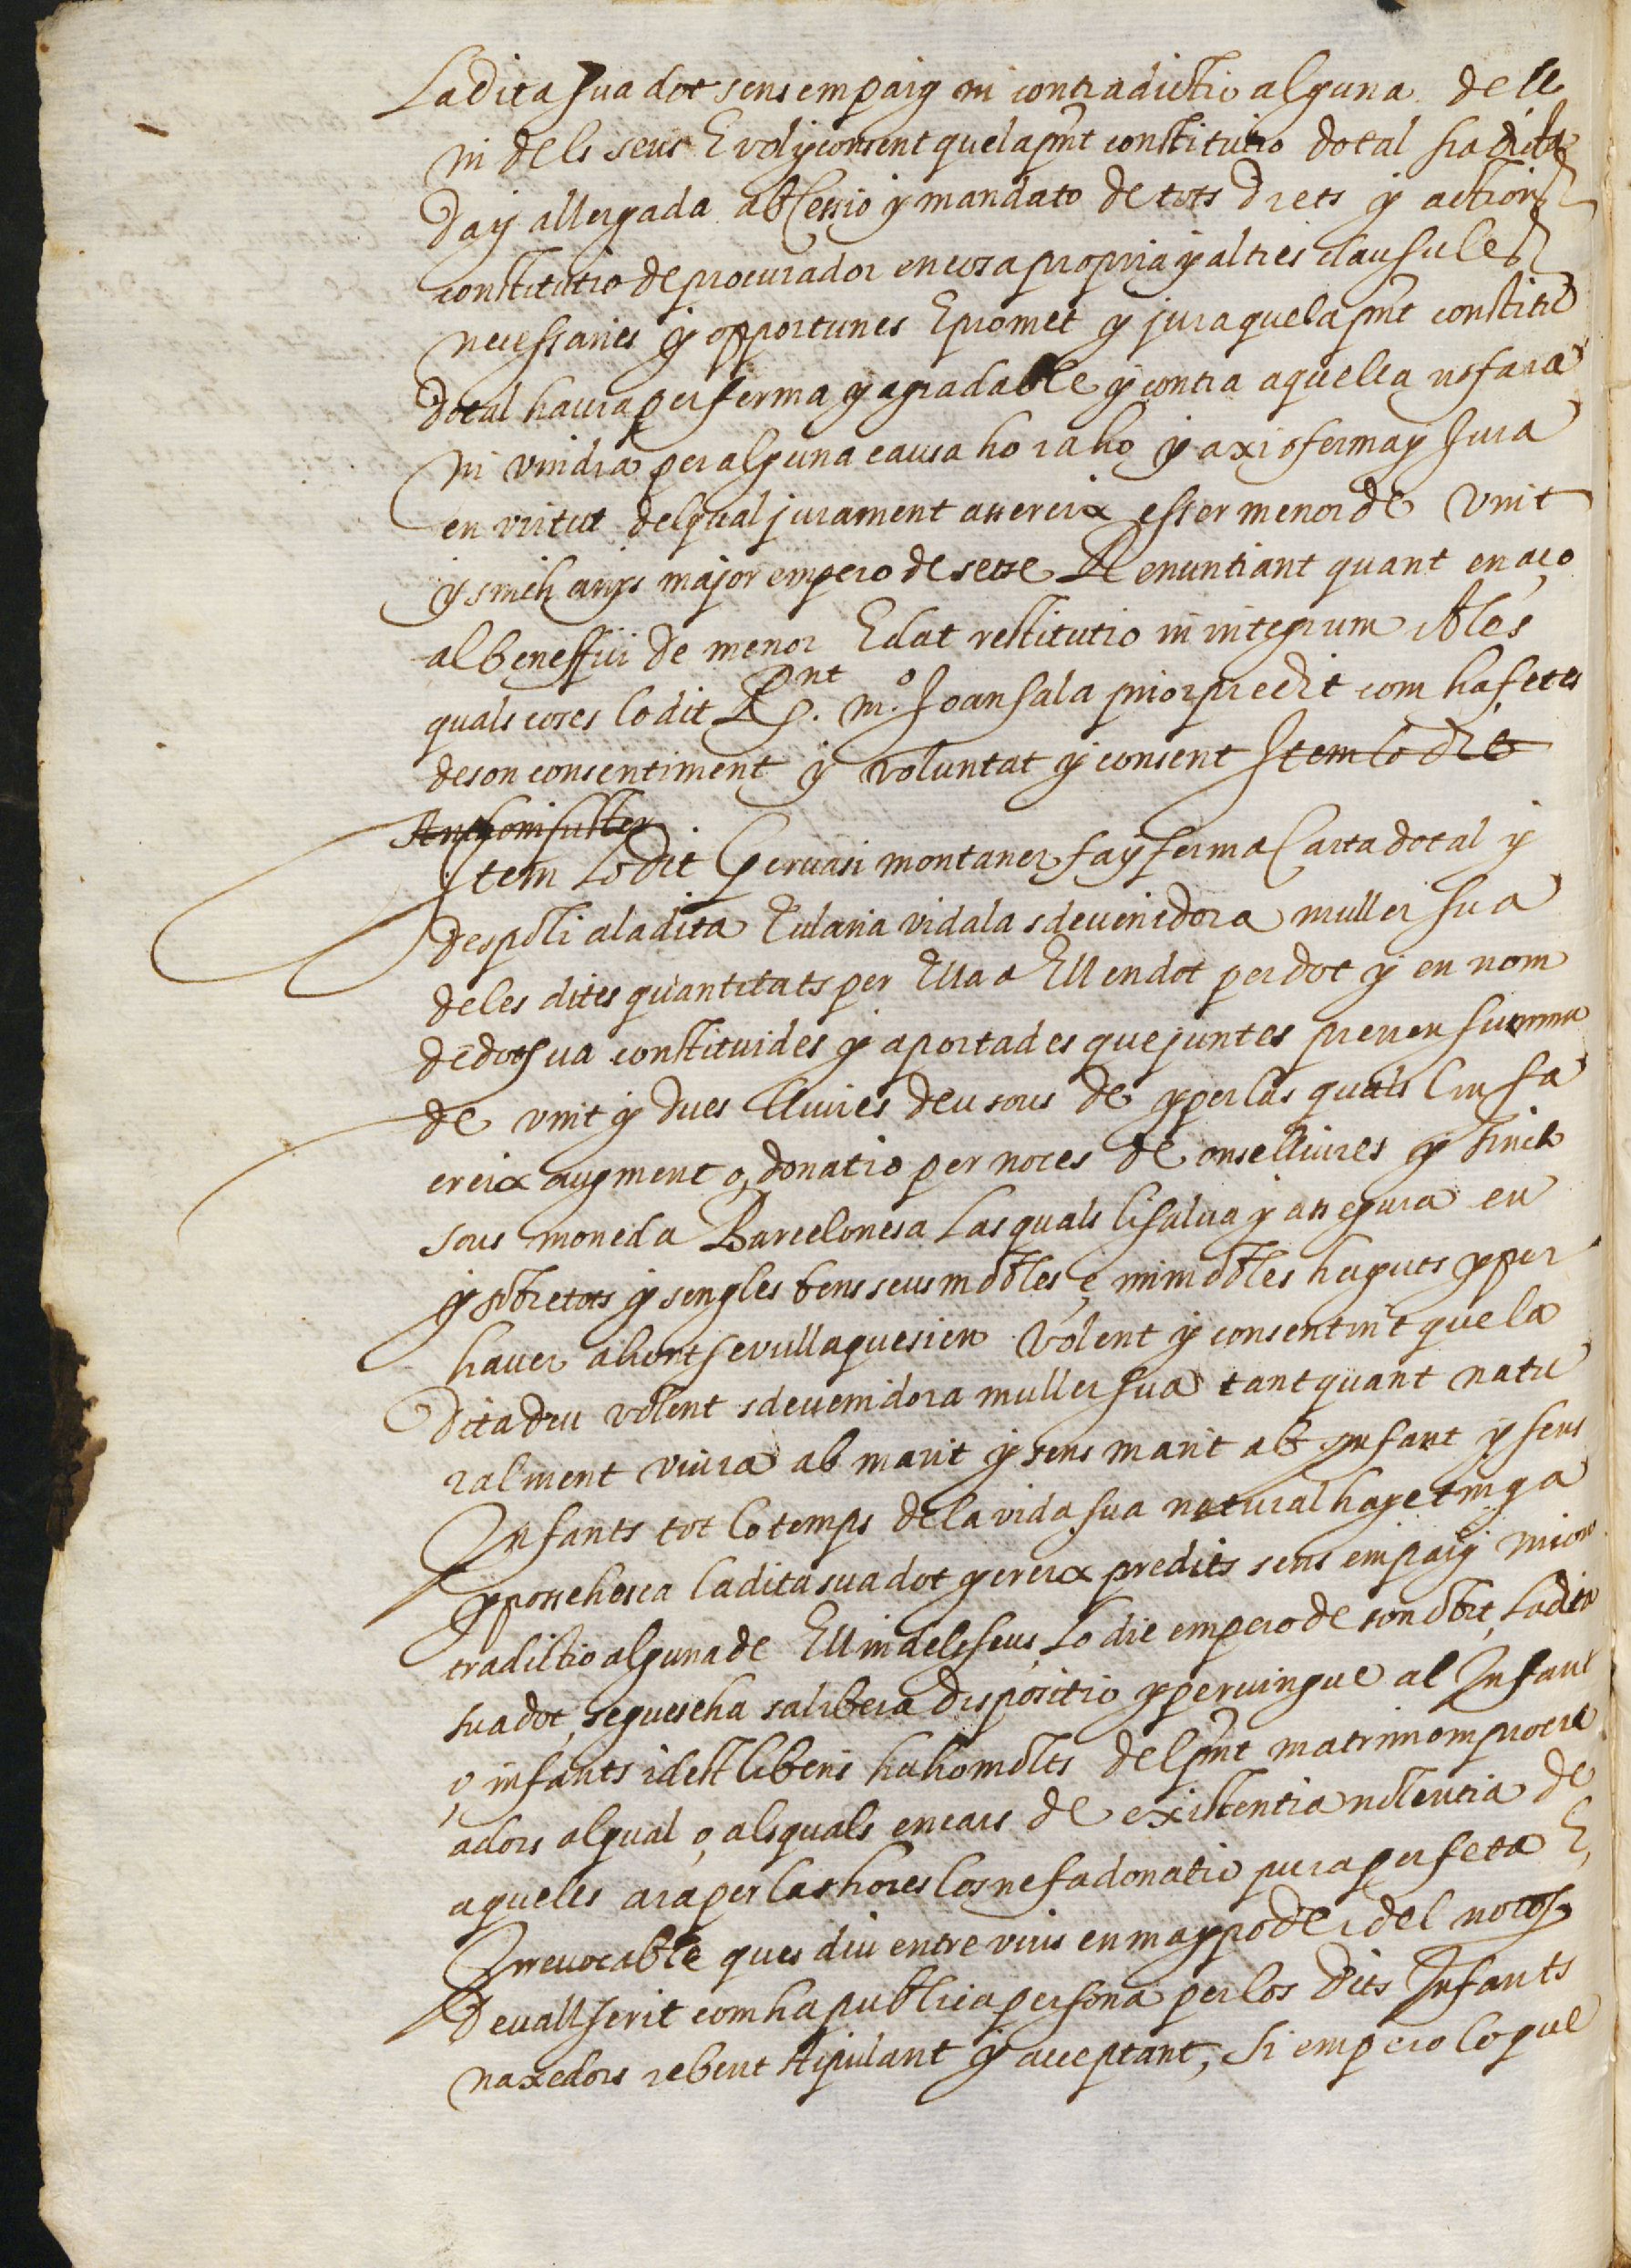 La dita sua dot sens empaig ni contradictio alguna de ell
ni dels seus E vol y consent que la pnt constitutio dotal sia dicta
da y allergada ab cessio y mandato de tots drets y actions
constitutio de procurador en cosa propria y altres clausules
necessaries y opportunes E promet y jura que la pnt constitu
dotal haura per ferma y agradable y contra aquella no fara
ni vindra per alguna causa ho raho y axi o ferma y Jura
en virtut del qual jurament assereix esser menor de vint
y sinch anys major empero de setse Renuntiant quant en aço
al beneffici de menor Edat restitutio in integrum A les
quals coses lo dit R. pnt m.º Joan sala prior predit com ha fetes
de son consentiment y voluntat y consent Item lo dit
Anthoni fuster
Item lo dit Gervasi montaner fa y ferma Carta dotal y
despoli a la dita Eularia vidala sdevenidora muller sua
de les dites quantitats per Ella a Ell en dot per dot y en nom
de dot sua constituides y aportades que juntes prenen summa
de vint y dues lliures deu sous de y per las quals li nfa
creix augment o, donatio per noces de onse lliures y sinch
sous moneda Barcelonesa Las quals li salva y assegura en
y sobre tots y sengles bens seus mobles e, immobles haguts y per
haver ahont se vulla que sien Volent y consentint que la
dita deu volent sdevenidora muller sua tant quant natu
ralment viura ab marit y sens marit ab Infant y sens
Infants tot lo temps de la vida sua natural haye tinga
y possehesca la dita sua dot y creix predits sens empaig ni con
tradictio alguna de Ell ni dels seus, Lo die empero de son obit, La dita
sua dot, seguescha sa libera dispositio y pervingue al Infant
o, infants idest libens hu ho molts del pnt matrimoni procre
adors al qual, o, als quals en cars de existentia no tentia de
aquells ara per las hores los ne fa donatio pura perfeta E,
Irrevocable ques diu entre vius en ma y poder del notⁱ
devall scrit com ha publica persona per los dits Infants
naxedors rebent stipulant y acceptant, Si empero lo que